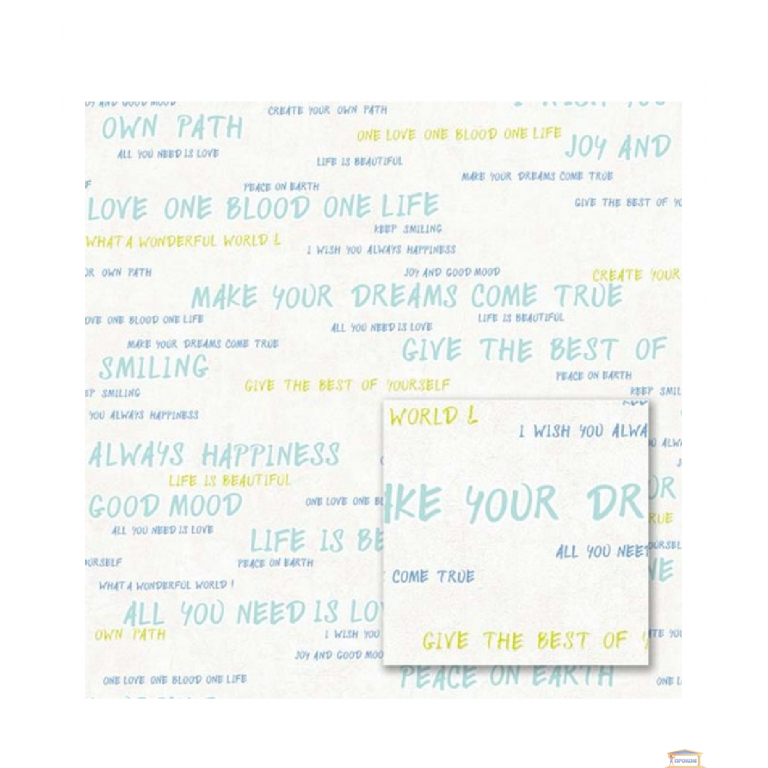 JOY AND GOOD MOOD
CREATE YOUR OWN PATH
I WISH YOU
OWN PATH
ONE LOVE ONE BLOOD ONE LIFE
JOY AND
ALL YOU NEED IS LOVE
LIFE IS BEAUTIFUL
MAKE YOUR DREAMS COME TRUE
F
PEACE ON EARTH
GIVE THE BEST OF YO
LOVE ONE BLOOD ONE LIFE
KEEP SMILING
WHAT A WONDERFUL WORLD !
I WISH YOU ALWAYS HAPPINESS
R OWN PATH
JOY AND GOOD MOOD
CREATE YOUR
MAKE YOUR DREAMS COME TRUE
OVE ONE BLOOD ONE LIFE
LIFE IS BEAUTIFUL
ALL YOU NEED IS LOVE
MAKE YOUR DREAMS COME TRUE
GIVE THE BEST OF
SMILING
PEACE ON EARTH
EP SMILING
GIVE THE BEST OF YOURSELF
KEEP SMIL
YOU ALWAYS HAPPINESS
WORLD !
I WISH YOU ALWA
ALWAYS HAPPINESS
LIFE IS BEAUTIFUL
GOOD MOOD
ONE LOVE ONE B
AKE YOUR DR
OR
RUE
ALL YOU NEED IS LOVE
LIFE IS BE
ALL YOU NEE
OURSEL
OURSELF
PEACE ON EARTH
COME TRUE
WHAT A WONDERFUL WORLD !
ALL YOU NEED IS LO
OWN PATH
I WISH YOU
GIVE THE BEST OF
JOY AND GOOD MOO
ONE LOVE ONE BLOOD ONE LIFE
PEACE ON EARTH
ONE L